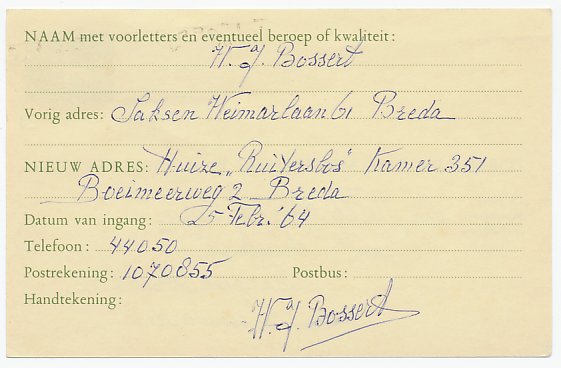 NAAM met voorletters en eventueel beroep of kwaliteit:
W. J. Bossert
Vorig adres: Saksen Weimarlaan 61 Breda
NIEUW ADRES: Huize „Ruitersbos" Kamer 351
Boeimeerweg 2 Breda
Datum van ingang: 25 Febr. '64
Telefoon: 44050
Postrekening: 1070855 Postbus:
Handtekening:
W. J. Bossert